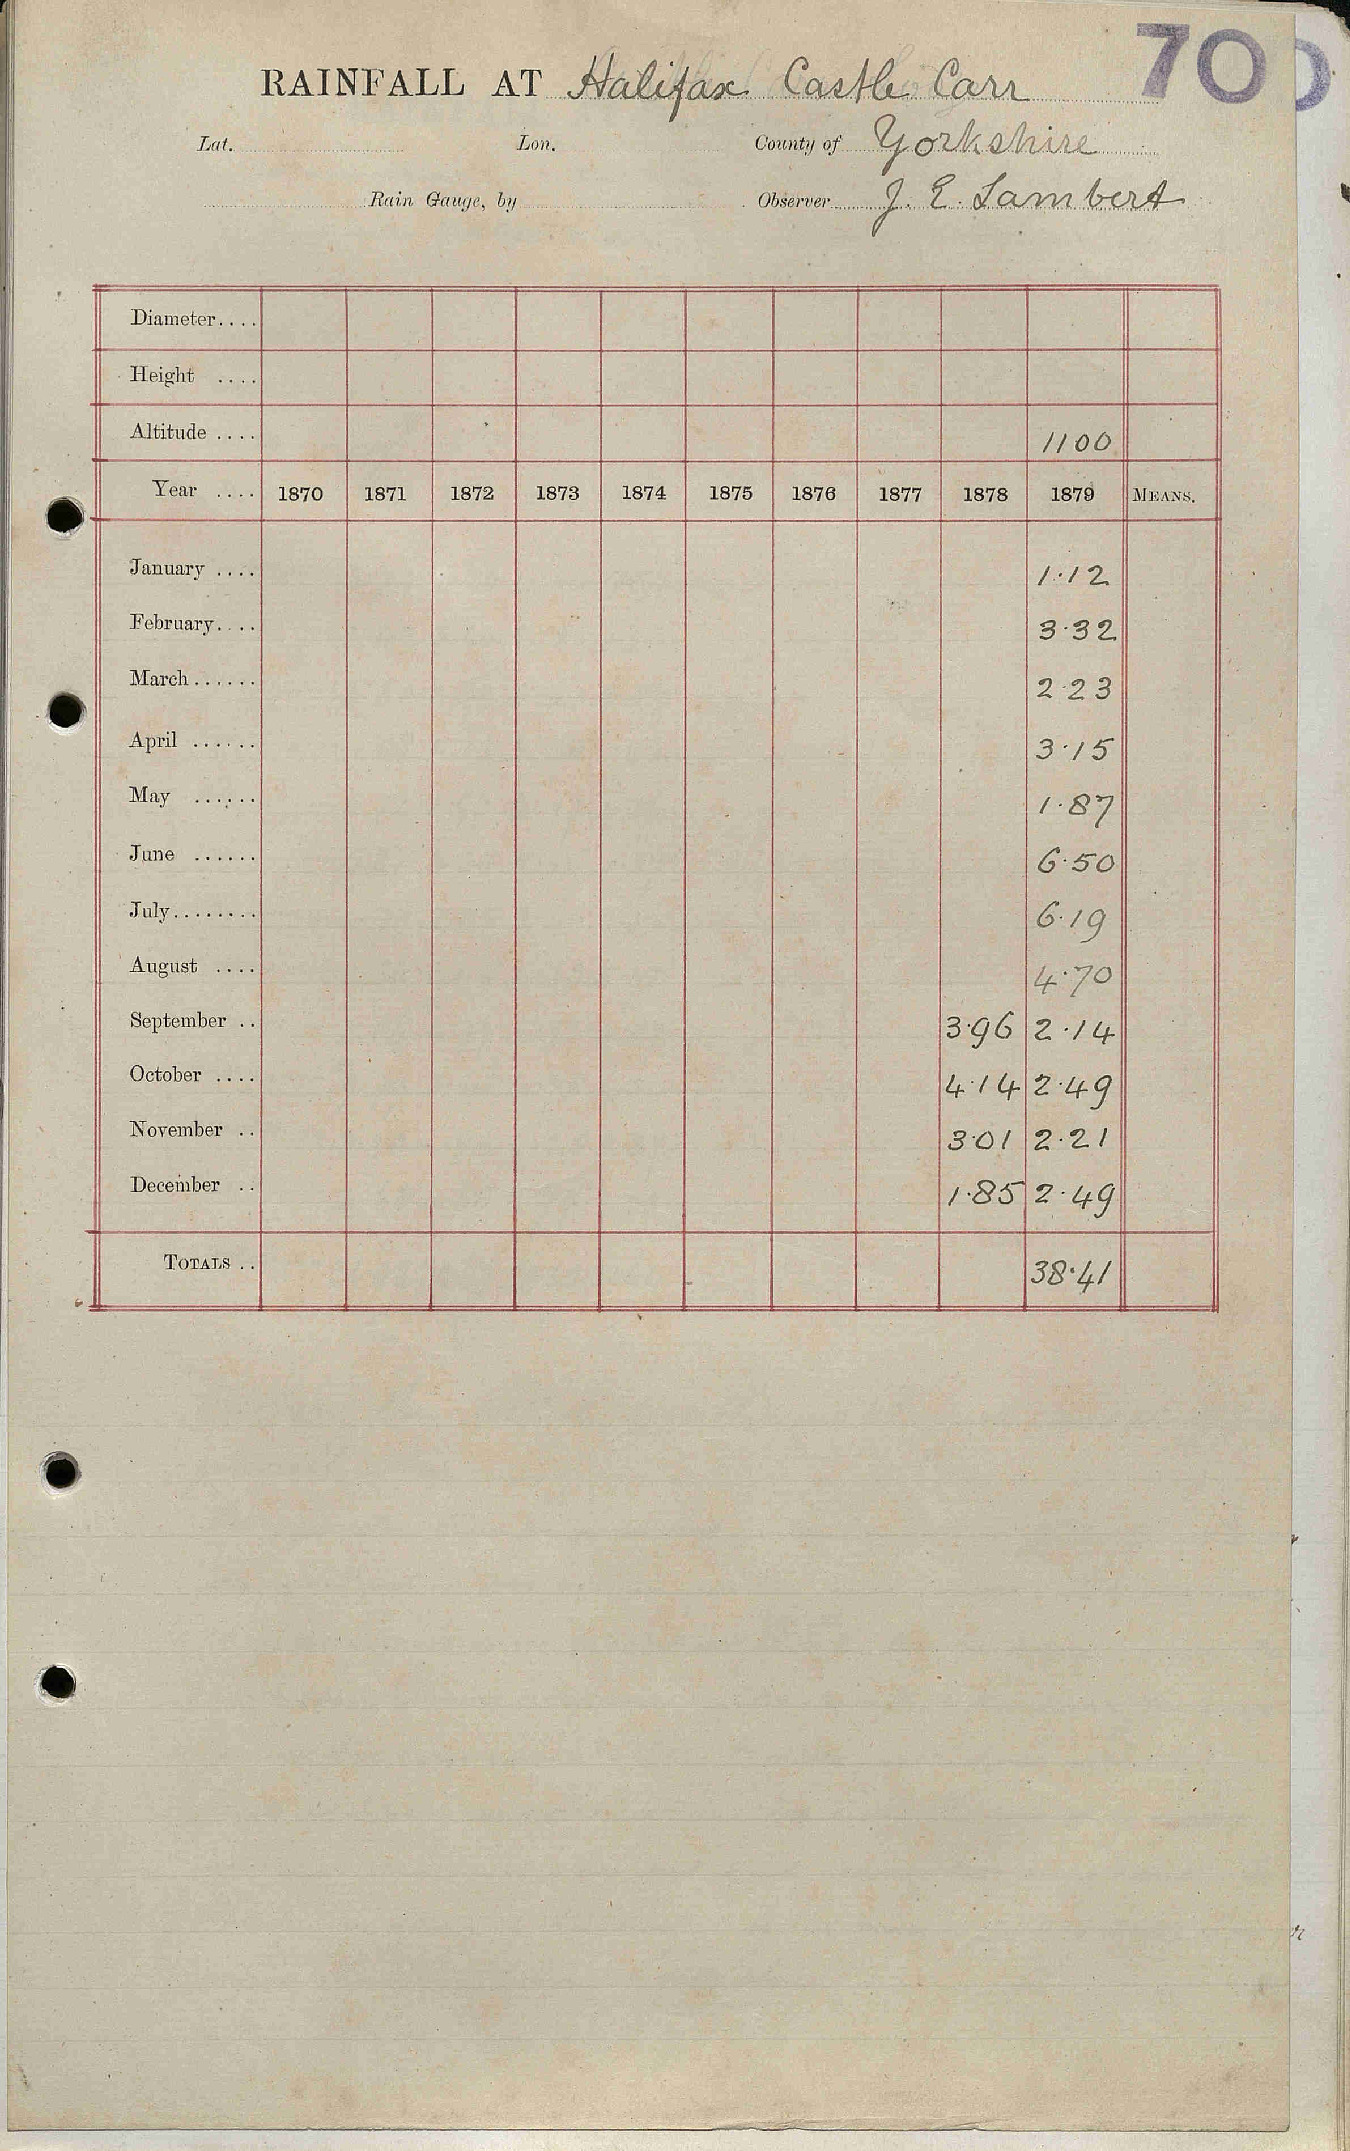 70
RAINFALL AT Halifax Castle Carr
Lat. Lon. County of Yorkshire
Rain Gauge, by Observer J. E. Lambert
Diameter....
Height ....
Altitude .... 1100
Year .... 1870 1871 1872 1873 1874 1875 1876 1877 1878 1879 MEANS.
January .... 1.12
February.... 3.32
March...... 2.23
April ...... 3.15
May ...... 1.87
June ...... 6.50
July........ 6.19
August .... 4.70
September .. 3.96 2.14
October .... 4.14 2.49
November .. 3.01 2.21
December .. 1.85 2.49
TOTALS .. 38.41